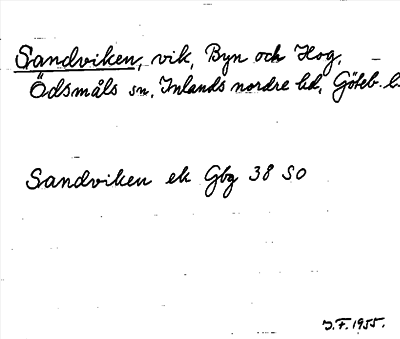 Sandviken, vik, Byn och Hog,
Ödsmåls sn, Inlands nordre hd, Göteb. l.
Sandviken ek Gbg 38 SO
J.F. 1955.